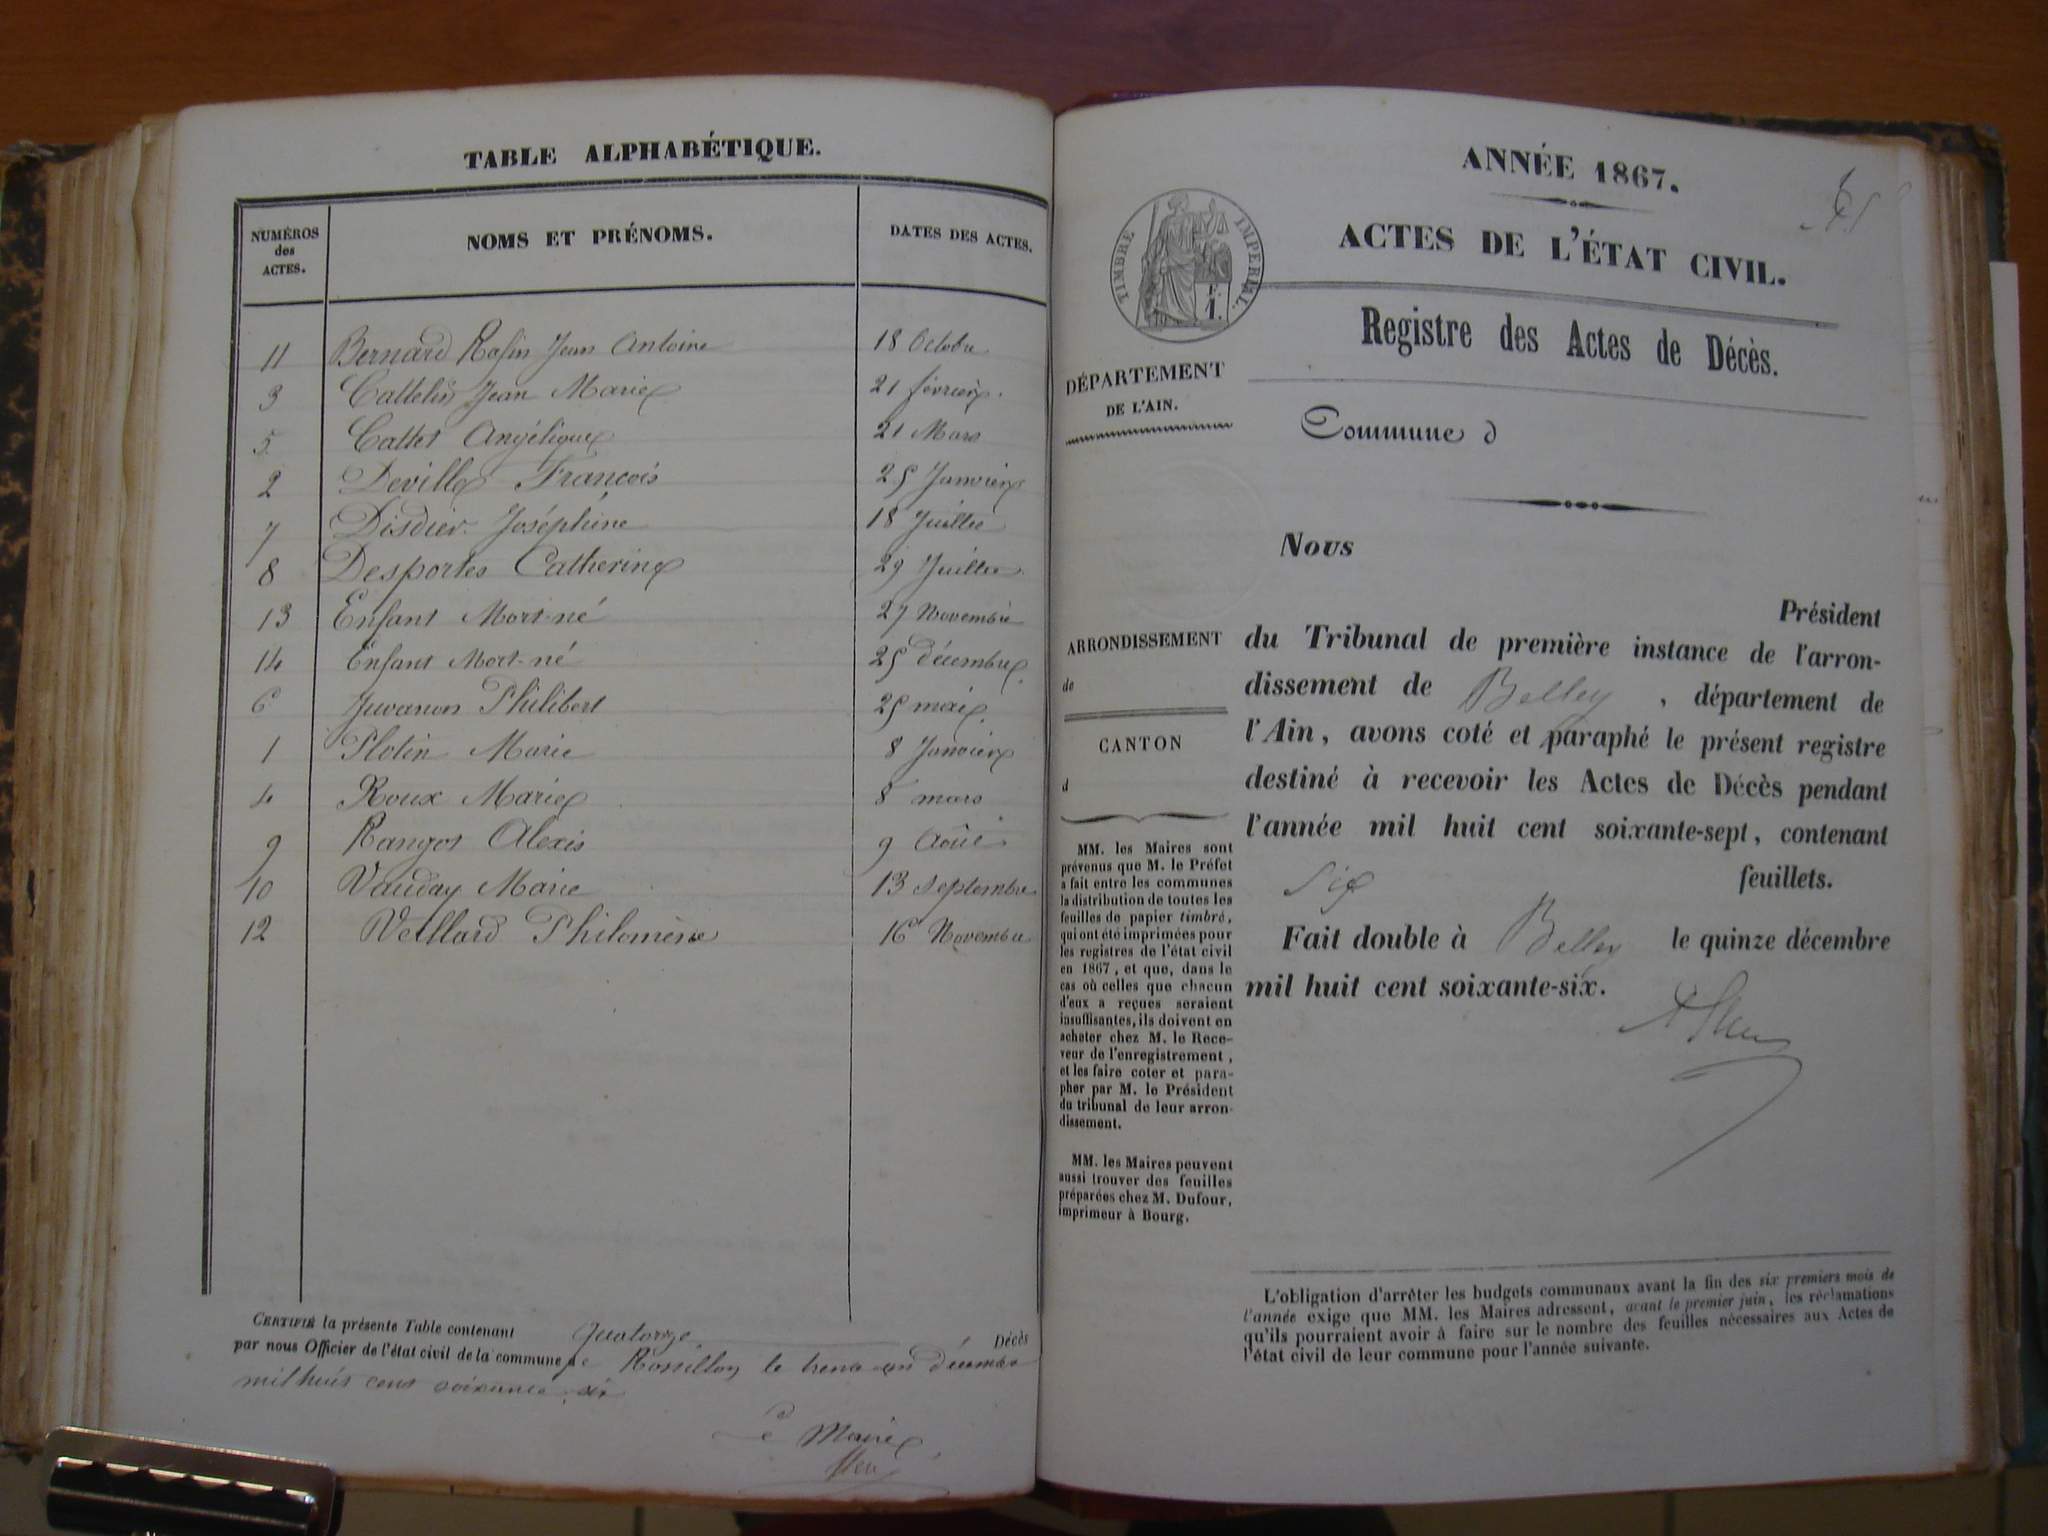 TABLE ALPHABÉTIQUE.
NUMÉROS
des
ACTES.
NOMS ET PRÉNOMS.
DATES DES ACTES.
11 Bernard Rosin Jean Antoine 18 Octobre
3 Cattelin Jean Marie 21 février.
5 Cattet Angélique 21 Mars
2 Deville François 25 Janvier
7 Disdier Joséphine 18 Juillet
8 Desportes Catherine 29 Juillet
13 Enfant Mort-né 27 Novembre
14 Enfant Mort-né 25 décembre
6 Juvanon Philibert 25 mai
1 Plotin Marie 8 Janvier
4 Roux Marie 8 mars
9 Rangot Alexis 9 Août
10 Vauday Marie 13 septembre
12 Veillard Philomène 16 Novembre
CERTIFIÉ la présente Table contenant quatorze Décès
par nous Officier de l'état civil de la commune de Rossillon le trente un décembre
mil huit cent soixante six
Le Maire
ANNÉE 1867.
ACTES DE L'ÉTAT CIVIL.
TIMBRE IMPERIAL.
Registre des Actes de Décès.
DÉPARTEMENT
DE L'AIN.
Commune d
Nous
Président
ARRONDISSEMENT
de
CANTON
d
du Tribunal de première instance de l'arron-
dissement de Belley, département de
l'Ain, avons coté et paraphé le présent registre
destiné à recevoir les Actes de Décès pendant
l'année mil huit cent soixante-sept, contenant
six feuillets.
Fait double à Belley le quinze décembre
mil huit cent soixante-six.
MM. les Maires sont
prévenus que M. le Préfet
a fait entre les communes
la distribution de toutes les
feuilles de papier timbré,
qui ont été imprimées pour
les registres de l'état civil
en 1867, et que, dans le
cas où celles que chacun
d'eux a reçues seraient
insuffisantes, ils doivent en
acheter chez M. le Rece-
veur de l'enregistrement,
et les faire coter et para-
pher par M. le Président
du tribunal de leur arron-
dissement.
MM. les Maires peuvent
aussi trouver des feuilles
préparées chez M. Dufour,
imprimeur à Bourg.
L'obligation d'arrêter les budgets communaux avant la fin des six premiers mois de
l'année exige que MM. les Maires adressent, avant le premier juin, les réclamations
qu'ils pourraient avoir à faire sur le nombre des feuilles nécessaires aux Actes de
l'état civil de leur commune pour l'année suivante.